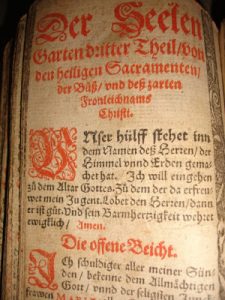 Der Seelen
Garten dritter Theil/ Von
den heiligen Sacramenten/
der Bůß/ vnd deß zarten
Fronleichnams
Christi.
VNser hülff stehet inn
dem Namen deß Herren/ der
Himmel vnnd Erden gema-
chet hat. Ich will eingehen
zů dem Altar Gottes. Zů dem der da erfrew-
wet mein Jugent. Lobet den Herren/ dann
er ist gůt. Vnd sein Barmhertzigkeit wehret
ewigklich/ Amen.
Die offene Beicht.
ICh schuldiger aller meiner Sün-
den/ bekenne dem Allmächtigen
Gott/ vnnd der seligsten Junck-
frawen MARIA